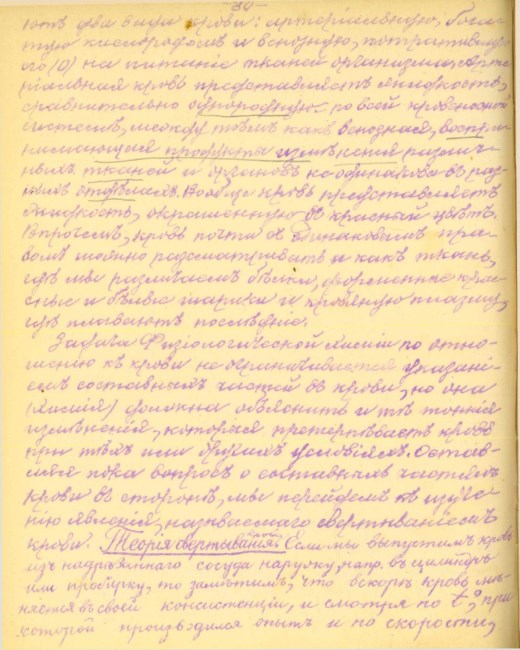 -34-
ютъ два вида крови: артерiальную, бога-
тую кислородомъ и венозную, потратившую
его (O) на питанiе тканей организма. Арте-
рiальная кровь представляетъ жидкость,
сравнительно однородную по всей кровеносной
системѣ, между тѣмъ какъ венозная, воспри-
нимающая продукты измѣненiя различ-
ныхъ тканей и органовъ не одинакова въ раз-
ныхъ отдѣлахъ. Вообще кровь представляетъ
жидкость, окрашенную въ красный цвѣтъ.
Впрочемъ, кровь почти съ одинаковымъ пра-
вомъ можно разсматривать и какъ ткань,
гдѣ мы различаемъ бѣлки, форменные крас-
ные и бѣлые шарики и кровяную плазму,
гдѣ плаваютъ послѣднiе.
Задача Физiологической Химiи по отно-
шенiю къ крови не ограничивается указанi-
емъ составныхъ частей въ крови, но она
(Химiя) должна объяснить и тѣ тонкiя
измѣненiя, которыя претерпѣваетъ кровь
при тѣхъ или другихъ условiяхъ. Остав-
ляя пока вопросъ о составныхъ частяхъ
крови въ сторонѣ, мы перейдемъ къ изуче-
нiю явленiя, называемаго свертыванiемъ
крови. Теорiя свертыванiя крови. Если мы выпустимъ кровь
изъ надрѣзаннаго сосуда наружу, напр. въ цилиндръ
или пробирку, то замѣтимъ, что вскорѣ кровь мѣ-
няется въ своей консистенцiи, и смотря по t°, при
которой производился опытъ и по скорости,